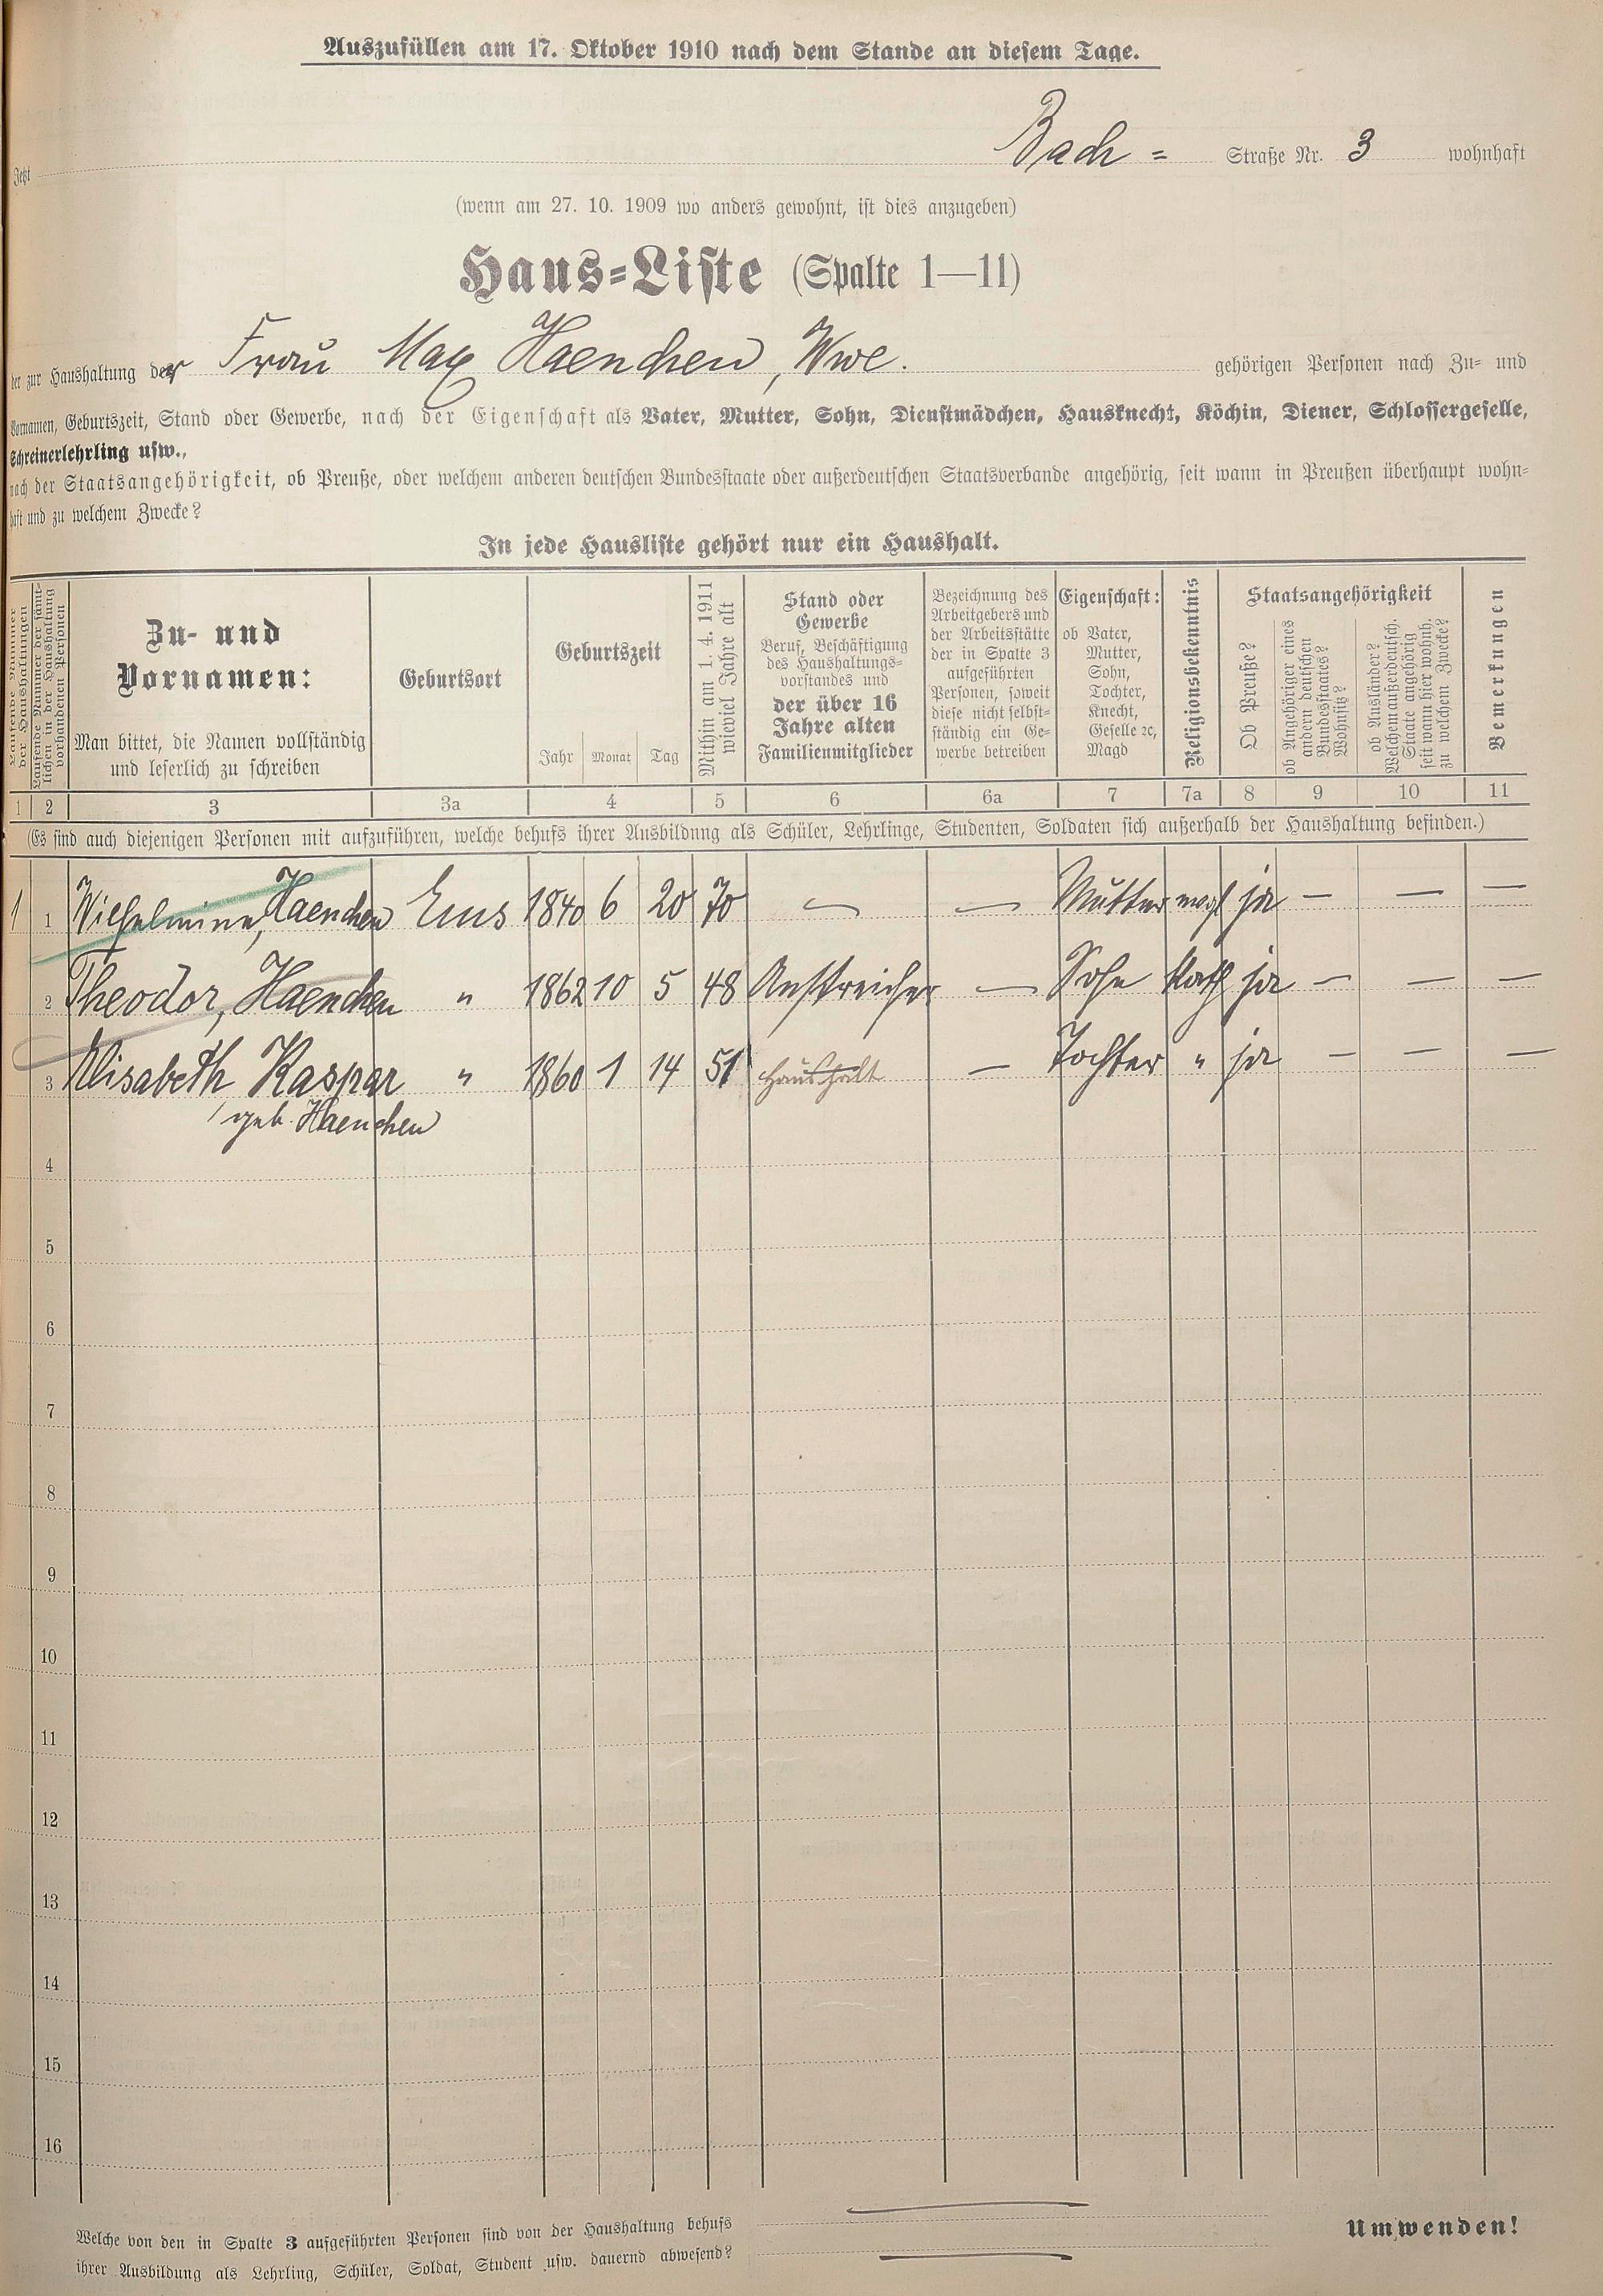 Auszufüllen am 17. Oktober 1910 nach dem Stande an diesem Tage.
Jetzt Bach = Straße Nr. 3 wohnhaft
(wenn am 27. 10. 1909 wo anders gewohnt, ist dies anzugeben)
Haus=Liste (Spalte 1—11)
der zur Haushaltung der Frau Max Haenchen, Wwe. gehörigen Personen nach Zu= und
Vornamen, Geburtszeit, Stand oder Gewerbe, nach der Eigenschaft als Vater, Mutter, Sohn, Dienstmädchen, Hausknecht, Köchin, Diener, Schlossergeselle,
Schreinerlehrling usw.,
nach der Staatsangehörigkeit, ob Preuße, oder welchem anderen deutschen Bundesstaate oder außerdeutschen Staatsverbande angehörig, seit wann in Preußen überhaupt wohn=
haft und zu welchem Zwecke?
In jede Hausliste gehört nur ein Haushalt.
Laufende Nummer
der Haushaltungen
Laufende Nummer der sämt=
lichen in der Haushaltung
vorhandenen Personen
Zu- und
Vornamen:
Man bittet, die Namen vollständig
und leserlich zu schreiben
Geburtsort
Geburtszeit
Jahr Monat Tag
Mithin am 1. 4. 1911
wieviel Jahre alt
Stand oder
Gewerbe
Beruf, Beschäftigung
des Haushaltungs=
vorstandes und
der über 16
Jahre alten
Familienmitglieder
Bezeichnung des
Arbeitgebers und
der Arbeitsstätte
der in Spalte 3
aufgeführten
Personen, soweit
diese nicht selbst=
ständig ein Ge=
werbe betreiben
Eigenschaft:
ob Vater,
Mutter,
Sohn,
Tochter,
Knecht,
Geselle ꝛc,
Magd
Religionsbekenntnis
Staatsangehörigkeit
Ob Preuße?
ob Angehöriger eines
andern deutschen
Bundesstaates?
Wohnsitz?
ob Ausländer?
Welchem außerdeutsch.
Staate angehörig
seit wann hier wohnh.
zu welchem Zwecke?
Bemerkungen
1 2 3 3a 4 5 6 6a 7 7a 8 9 10 11
(Es sind auch diejenigen Personen mit aufzuführen, welche behufs ihrer Ausbildung als Schüler, Lehrlinge, Studenten, Soldaten sich außerhalb der Haushaltung befinden.)
1 1 Wilhelmine, Haenchen Ems 1840 6 20 70 — — Mutter ja — — —
2 Theodor, Haenchen " 1862 10 5 48 Anstreicher — Sohn Kath ja — — —
3 Elisabeth Kaspar " 1860 1 14 51 Haushalt — Tochter " ja — — —
geb. Haenchen
4
5
6
7
8
9
10
11
12
13
14
15
16
Welche von den in Spalte 3 aufgeführten Personen sind von der Haushaltung behufs
ihrer Ausbildung als Lehrling, Schüler, Soldat, Student usw. dauernd abwesend?
Umwenden!